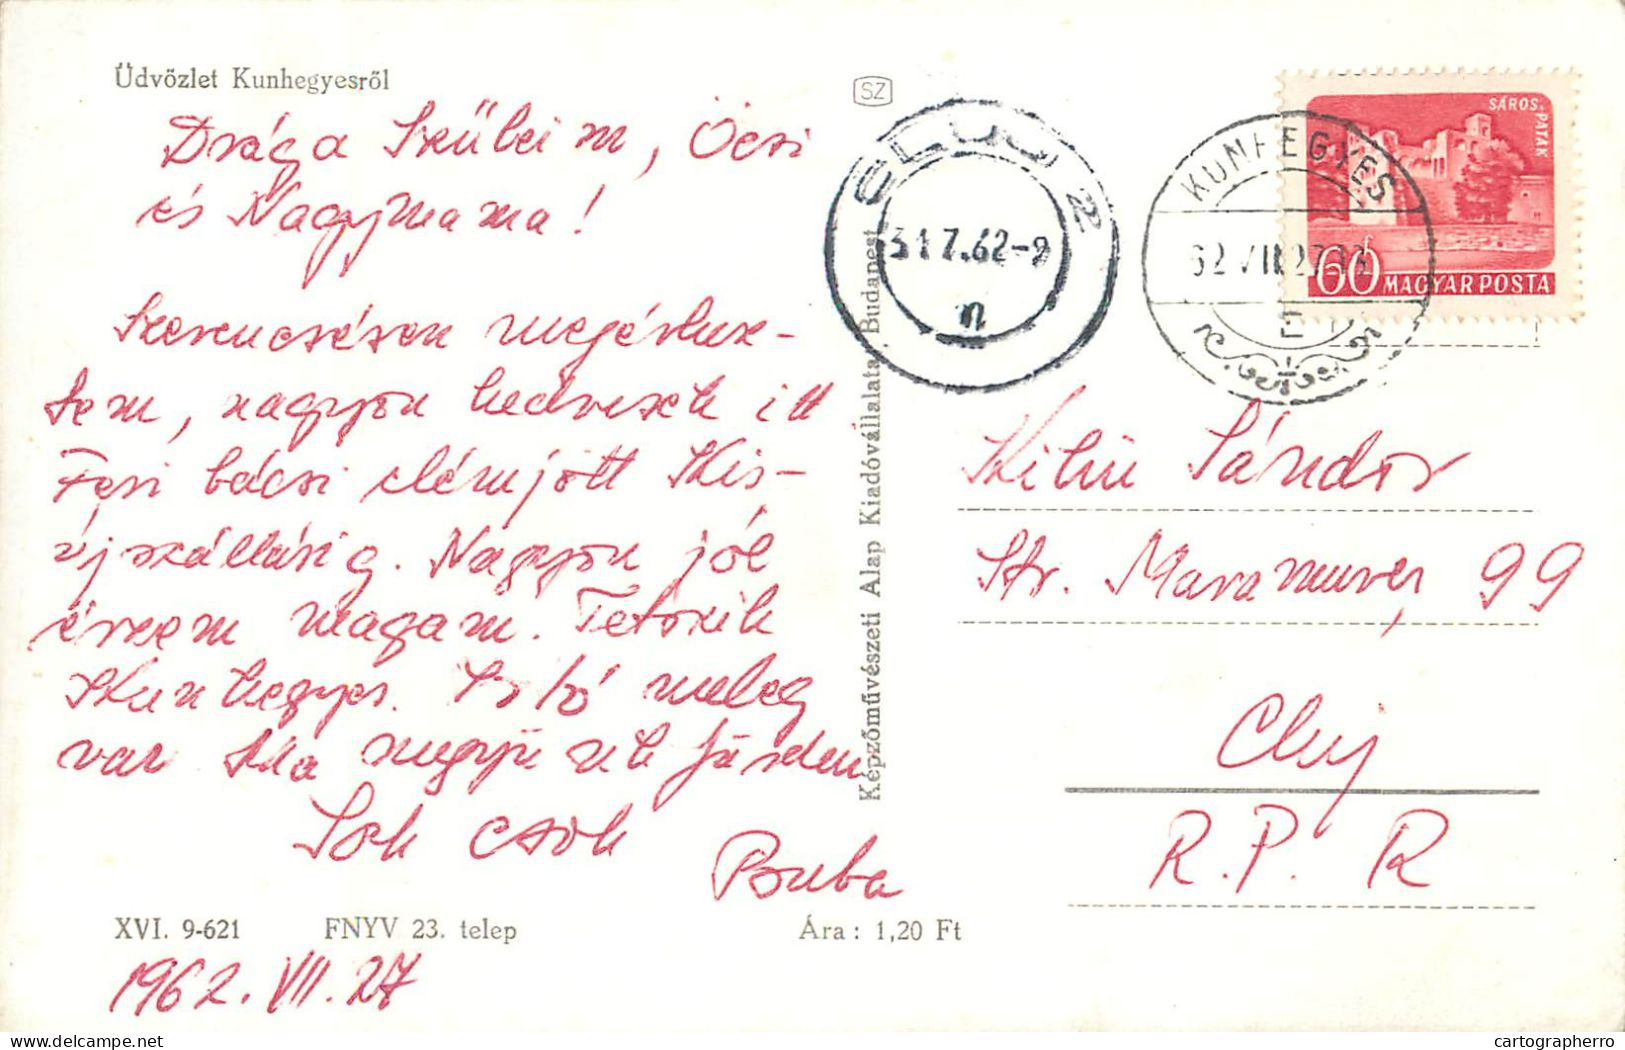 Üdvözlet Kunhegyesről
Drága Szüleim, Öcsi
és Nagymama!
Szerencsésen megérkez-
tem, nagyon kedvesek itt
Feri bácsi elémjött Kis-
újszállásig. Nagyon jól
érzem magam. Tetszik
Kunhegyes. meleg
van Ma megyünk fürdeni
Sok csók
Buba
XVI. 9-621 FNYV 23. telep Ára: 1,20 Ft
1962. VII. 27
Képzőművészeti Alap Kiadóvállalata, Budapest
SZ
CLUJ 2
31 7.62-9
KUNHEGYES
62 VII 27
SÁROS-
PATAK
60f MAGYAR POSTA
Sándor
Str. Maramureș 99
Cluj
R.P.R
cartographerro